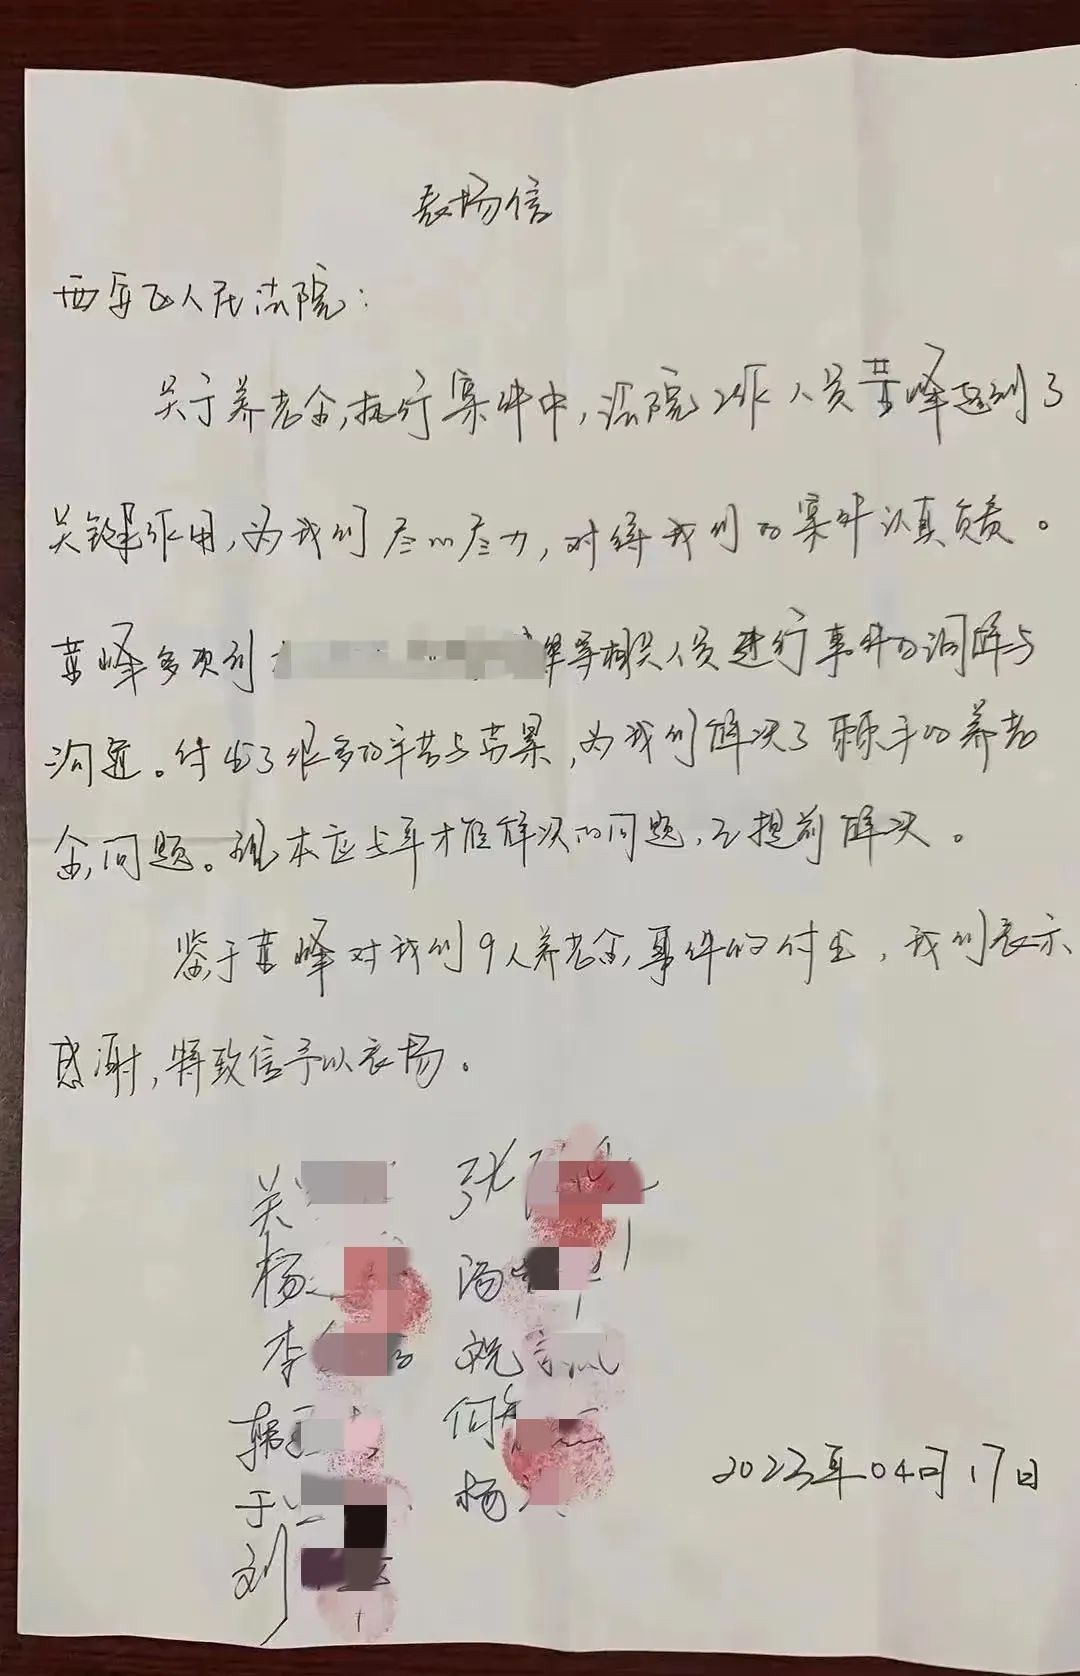 表扬信
西安区人民法院：
关于养老金执行案件中，法院工作人员黄峰起到了
关键作用，为我们尽心尽力，对待我们的案件认真负责。
黄峰多次到 等相关人员进行事件的调解与
沟通。付出了很多的辛苦与劳累，为我们解决了棘手的养老
金问题。现本应5年才能解决的问题，已提前解决。
鉴于黄峰对我们9人养老金事件的付出，我们表示
感谢，特致信予以表扬。
关 张
杨 汤
李 祝
韩 何
于 杨
刘
2023年04月17日